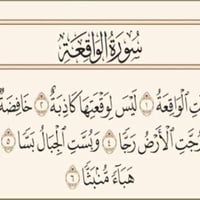 سُورَةُ الوَاقِعَةِ
ٱلْوَاقِعَةُ ١ لَيْسَ لِوَقْعَتِهَا كَاذِبَةٌ ٢ خَافِضَةٌ
رُجَّتِ ٱلْأَرْضُ رَجًّا ٤ وَبُسَّتِ ٱلْجِبَالُ بَسًّا ٥
هَبَآءً مُّنۢبَثًّا ٦